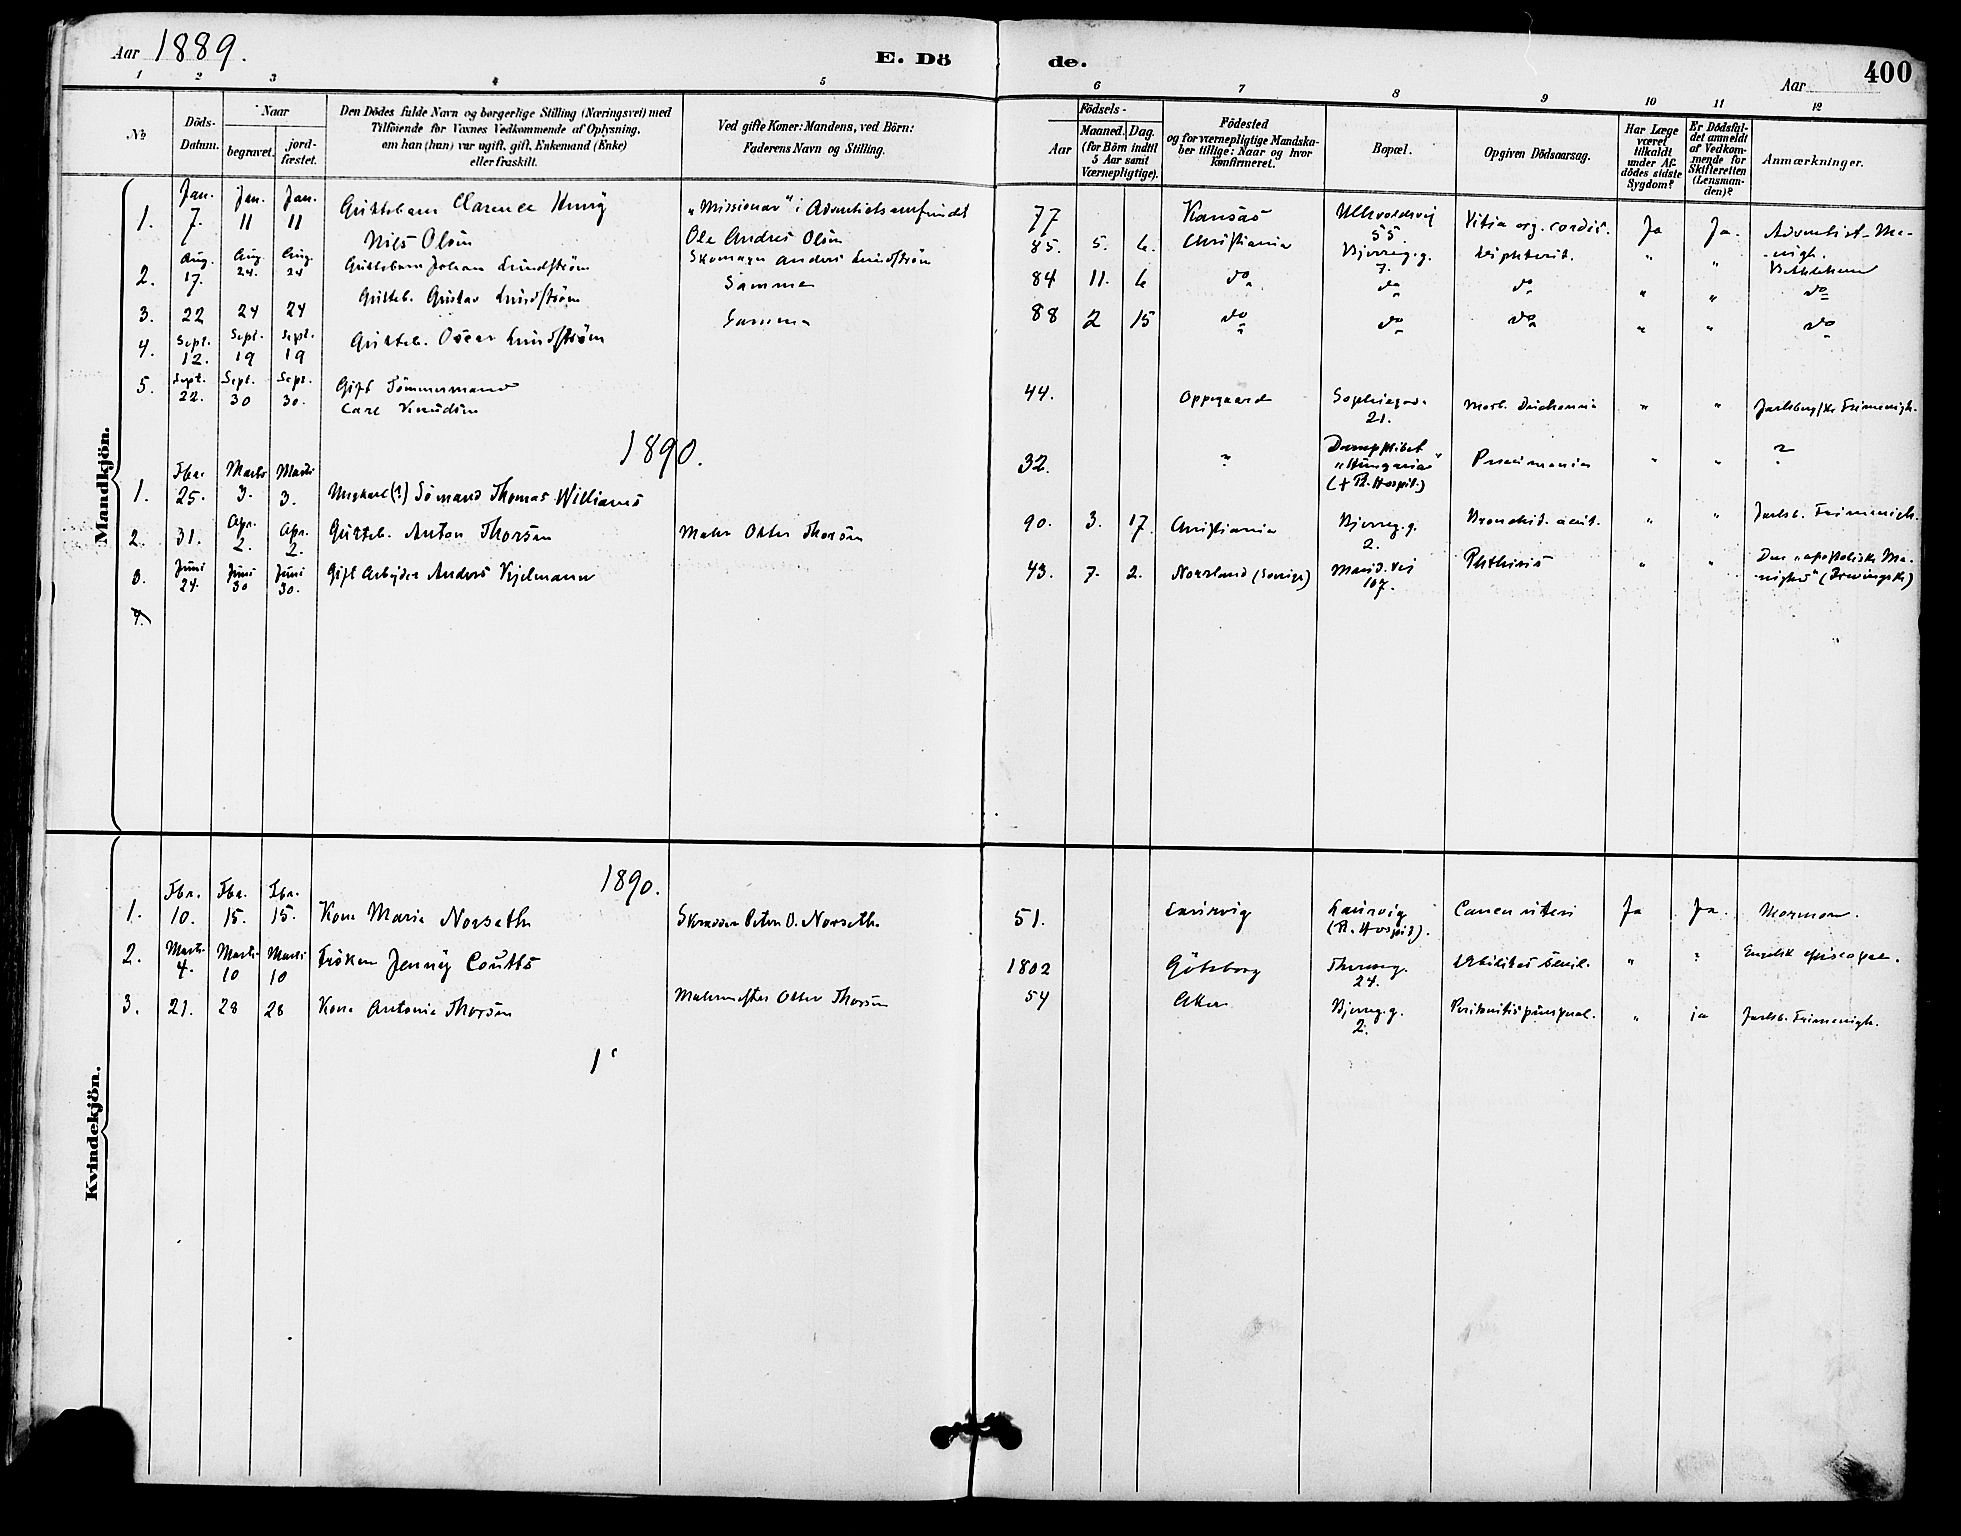 Aar 1889.
E. Dö de.
Aar 400
1 2 3 4 5 6 7 8 9 10 11 12
No
Döds-Datum.
Naar begravet. jord-fæstet.
Den Dödes fulde Navn og borgerlige Stilling (Næringsvei) med
Tilföiende for Voxnes Vedkommende af Oplysning,
om han (hun) var ugift, gift, Enkemand (Enke)
eller fraskilt.
Ved gifte Koner: Mandens, ved Börn:
Faderens Navn og Stilling.
Födsels-
Aar Maaned. Dag.
(for Börn indtil
5 Aar samt
Værnepligtige).
Födested
og for værnepligtige Mandska-
ber tillige: Naar og hvor
konfirmeret.
Bopæl.
Opgiven Dödsaarsag.
Har Læge
været
tilkaldt
under Af-
dödes sidste
Sygdom?
Er Dödsfal-
det anmeldt
af Vedkom-
mende for
Skifteretten
(Lensman-
den)?
Anmærkninger.
Mandkjön.
1. Jan. 7. Jan. 11 Jan. 11 Guttebarn Clarence Henry Nils Olsen "Missionær" i Adventistsamfundet Ole Andres Olsen 77 Kansas Ullevoldsvej 55. Vitia org. cordis. Ja Ja. Adventist-Me-nigh.
2. Aug. 17. Aug. 24. Aug. 24 Guttebarn Johan Lundström Skomager Anders Lundström 85. 5. 6. Christiania Bjerreg.g. 7. Diphterit. " " Bethlehem
3. 22 24 24 Gutteb. Gustav Lundström Samme 84 11. 6 do do do " " do
4. Sept. 12. Sept. 19 Sept. 19 Gutteb. Oscar Lundström Samme 88 2 15 do do do " " do
5. Sept. 22. Sept. 30 Sept. 30. Gift Tömmermand Carl Knudsen 44. Oppegaard Sophiegad. 21. Morb. " " Jarlsberg Frimenigh.
1890.
1. Fbr. 25. Marts 3. Marts 3. Ungkarl (?) Sömand Thomas Williams 32. " Dampskibet "Hungaria" (+ R. Hospit.) Pneumonia " " ?
2. 31. Apr. 2. Apr. 2. Gutteb. Anton Thorsen Maler Otter Thorsen 90. 3. 17. Christiania Bjerreg.g. 2. Bronchit. acut. " " Jarlsb. Frimenigh.
3. Juni 24. Juni 30 Juni 30. Gift Arbejder Anders Kjelmann 43. 7. 2. Norrland (Sverige) Marid. vej 107. Phthisis " " Den "apostoliske Me-nighed" (Irvingsk)
4.
Kvindekjön.
1890.
1. Fbr. 10. Fbr. 15. Fbr. 15. Kone Marie Norseth Skrædder Peter O. Norseth. 51. Laurvig Laurvig (R. Hospit). Cancer uteri Ja Ja. Mormon.
2. Marts 4. Marts 10 Marts 10 Fröken Jenny Coutts 1802 Göteborg Thereseg. 24. Debilitas senil. " " Engelsk episcopal.
3. 21. 28 28 Kone Antonie Thorsen Malermester Otter Thorsen 54 Aker Bjerreg.g. 2. Peritonitis puerperal. " ja Jarlsb. Frimenigh.
1